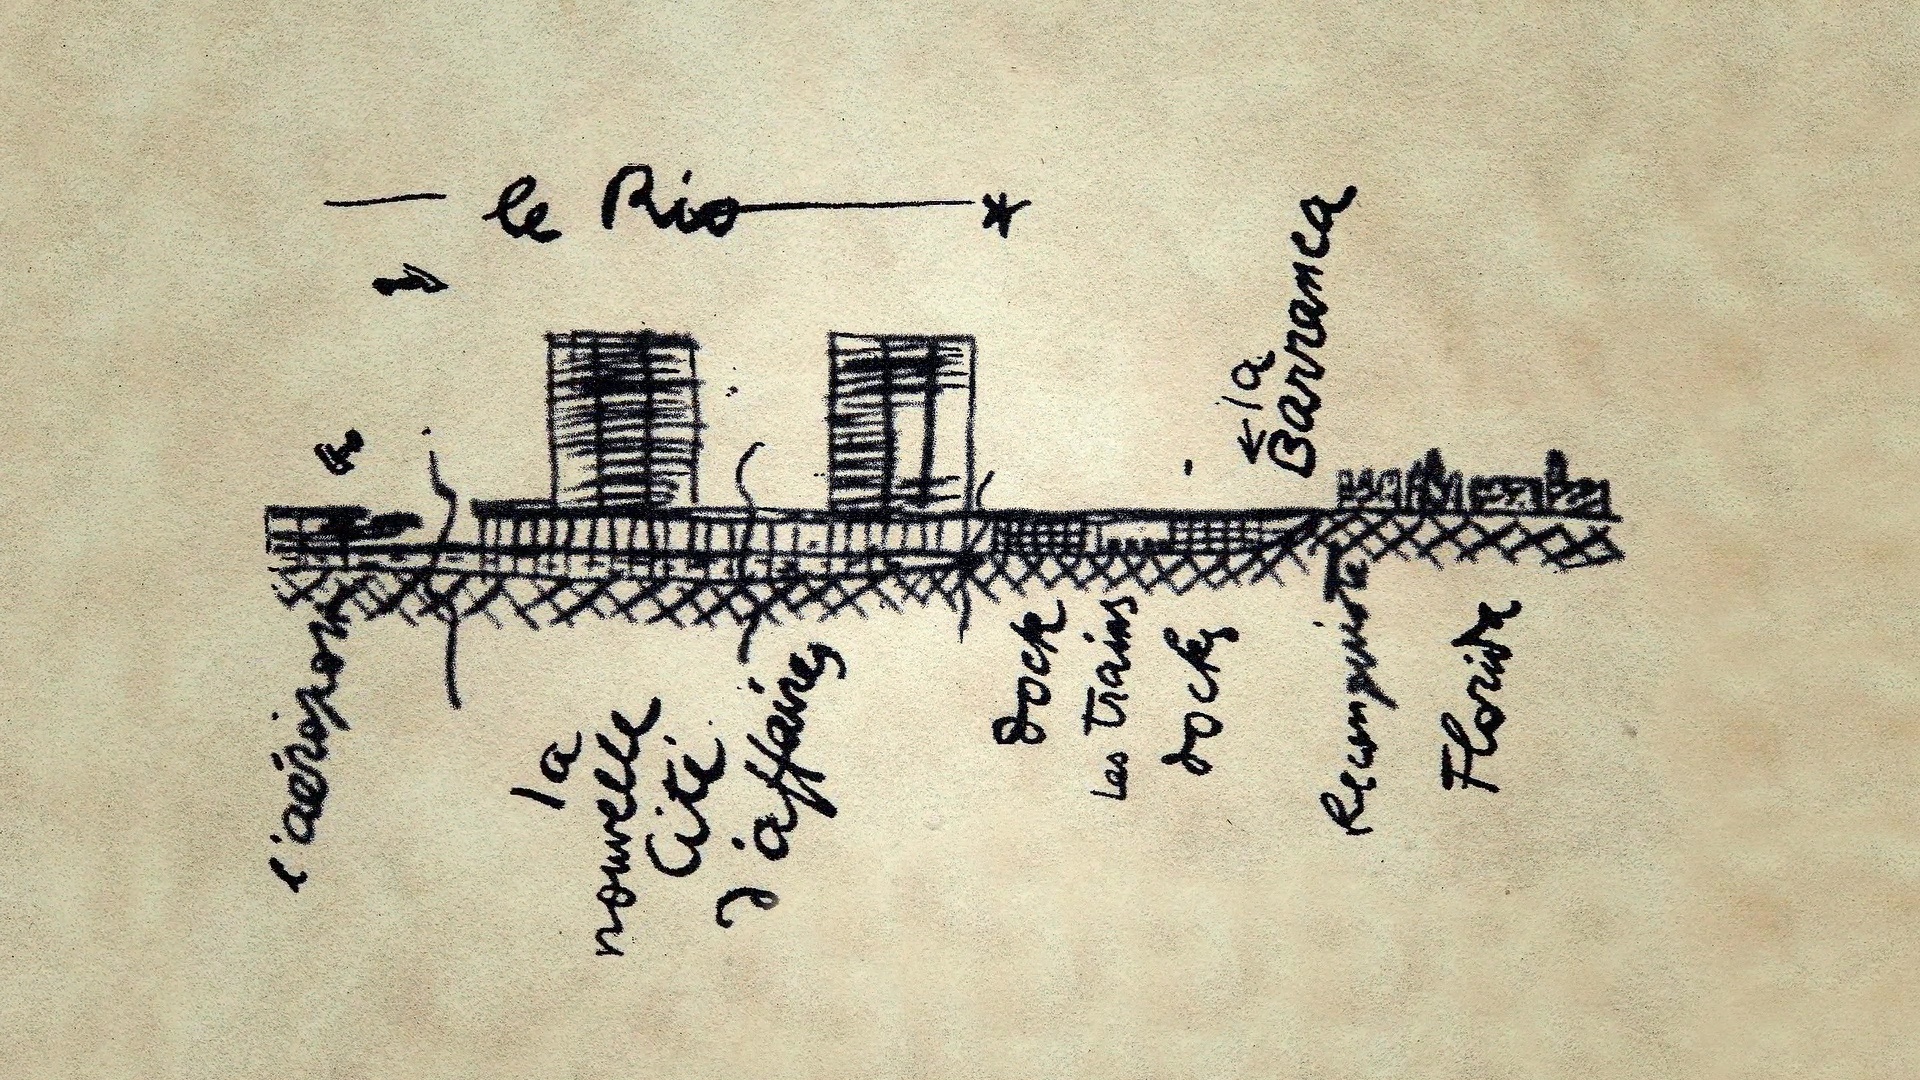 le Rio
la
Barranca
l'aéroport
la
nouvelle
Cité
d'affaires
dock
Les Trains
docks
Reconquista
Florida